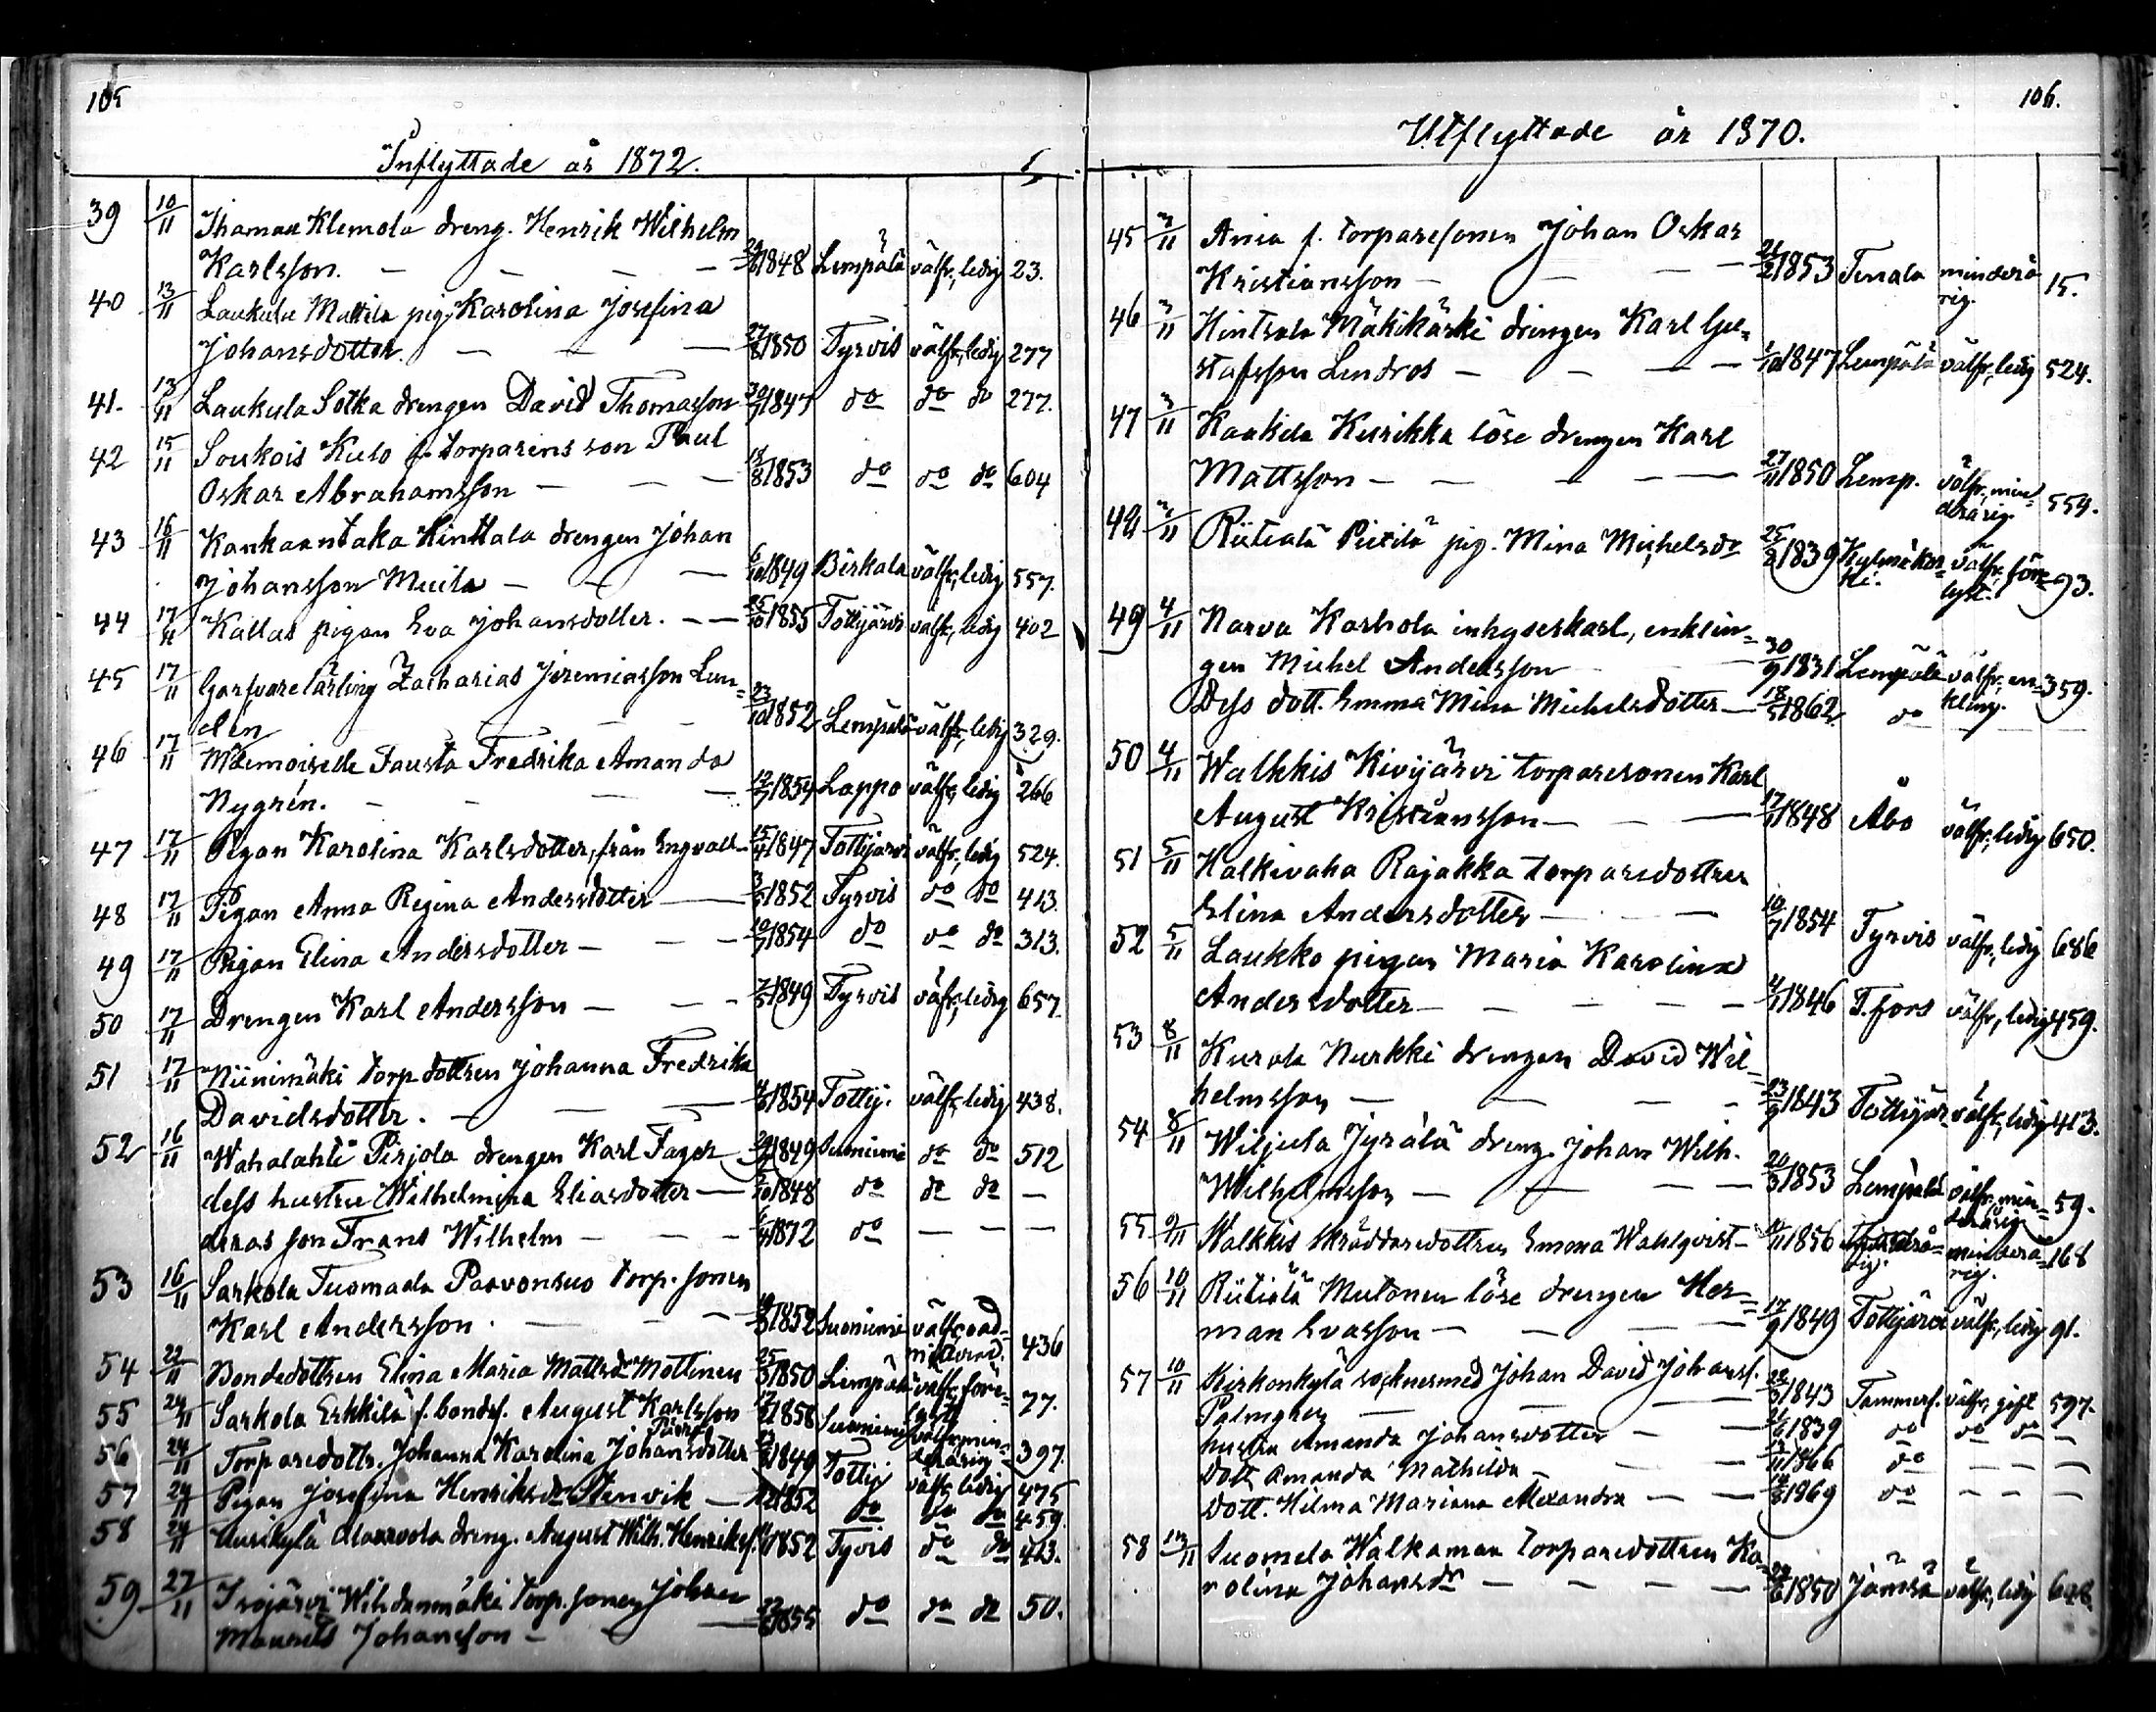 105
Inflyttade år 1872.
39 10/11 Thaman Klemola dreng. Henrik Wilhelm
Karlsson. — 1848 Lempälä välfr, ledig 23.
40 13/11 Laukula Mattila pig. Karolina Josefina
Johansdotter. — 27/8 1850 Tyrvis välfr, ledig 277
41. 13/11 Laukula Sotka drengen David Thomasson 30/9 1847 do do do 277.
42 15/11 Soukois Kulo f. torparens son Paul
Oskar Abrahamsson — 18/8 1853 do do do 604
43 16/11 Kankaantaka Hinttala drengen Johan
Johansson Muila — 6/10 1849 Birkala välfr, ledig 557.
44 17/11 Kallas pigan Eva Johansdotter. — 1855 Tottijärvi välfr, ledig 402
45 17/11 Garfvarelärling Zacharias Jeremiasson Lun-
den 23/10 1852 Lempälä välfr, ledig 329.
46 17/11 Mademoiselle Fausta Fredrika Amanda
Nygrén. — 12/7 1854 Lappo välfr, ledig 266
47 17/11 Pigan Karolina Karlsdotter, från Engvall 15/4 1847 Tottijärvi välfr, ledig 524.
48 17/11 Pigan Anna Regina Andersdotter — 3/5 1852 Tyrvis do do 413.
49 17/11 Pigan Elina Andersdotter — 10/7 1854 do do do 313.
50 17/11 Drengen Karl Andersson — 1849 Tyrvis välfr, ledig 657.
51 17/11 Niinimäki torp. dottren Johanna Fredrika
Davidsdotter. — 1854 Tottij. välfr, ledig 438.
52 16/11 Wahalahti Pirjola drengen Karl Fager 1849 Suoniemi do do 512
dess hustru Wilhelmina Eliasdotter — 1848 do do do —
deras son Frans Wilhelm — 1872 do — — —
53 16/11 Sarkola Tuomaala Paavonsuo torp. sonen
Karl Andersson. — 1852 Suoniemi välfr, oad-
mitterad. 436
54 22/11 Bondedottren Elina Maria Mattsdr Mottinen 25/3 1850 Lempälä välfr, före-
lyst 77.
55 24/11 Sarkola Erkkilä f. bondes. August Karlsson 1858 Suoniemi välfr, min-
derårig 397.
56 24/11 Torparedottr. Johanna Karolina Johansdotter 1849 Tottij välfr, ledig 475
57 24/11 Pigan Josefina Henriksdr Stenvik — 1852 do do do 459.
58 24/11 dreng. August Wilh. Henrikss. 1852 Tyrvis do do 413.
59 27/11 Isojärvi torp. sonen Johan
Maurits Johansson — 1855 do do do 50.
106.
Utflyttade år 1870.
45 3/11 Ania f. torparesonen Johan Oskar
Kristiansson — 1853 Tenala minderå
rig. 15.
46 3/11 Hintsala Mäkikärki drengen Karl Gu-
stafsson Lindros — 1/10 1847 Lempälä välfr, ledig 524.
47 3/11 Kaakila Kurikka löse drengen Karl
Mattsson — 27/11 1850 Lemp. välfr, min-
derårig. 559.
48 3/11 Riitialä Pietilä pig. Mina Michelsdr 25/2 1839 Kylmäkos-
ki. välfr, före-
lyst. 93.
49 4/11 Narva Karhola inhyseskarl, enklin-
gen Michel Andersson 30/9 1831 Lempälä välfr, en-
kling. 359.
Dess dott. Emma Mina Michelsdotter — 18/5 1862 do — —
50 4/11 Walkkis Kivijärvi torparesonen Karl
August Kristiansson — 1848 Åbo välfr, ledig 650.
51 5/11 Halkivaha Rajakka torparedottren
Elina Andersdotter — 10/7 1854 Tyrvis välfr, ledig 686
52 5/11 Laukko pigan Maria Karolina
Andersdotter — 1846 T.fors välfr, ledig 459.
53 8/11 Kurala Nurkki drengen David Wil-
helmsson — 23/9 1843 Tottijär. välfr, ledig 413.
54 8/11 Wiljula Jyrälä dreng. Johan Wilh.
Wilhelmsson — 20/3 1853 Lempälä välfr, min-
derårig 59.
55 9/11 Walkkis skräddaredottren Emma Wahlqvist — 1856 minderå-
rig. 168
56 10/11 Riitialä Mutonen löse drengen Her-
man Evasson — 17/9 1849 Tottijärvi välfr, ledig 91.
57 10/11 Kirkonkylä socknesmed Johan David Johanss.
Palmgren — 1843 Tammerf. välfr, gift 597.
hustru Amanda Johansdotter — 1839 do do do —
Dott. Amanda Mathilda — 1866 do — — —
Dott. Hilma Mariana Alexandra — 1869 do — — —
58 13/11 Suomela Walkaman torparedottren Ka-
rolina Johansdr — 1850 Jämsä välfr, ledig